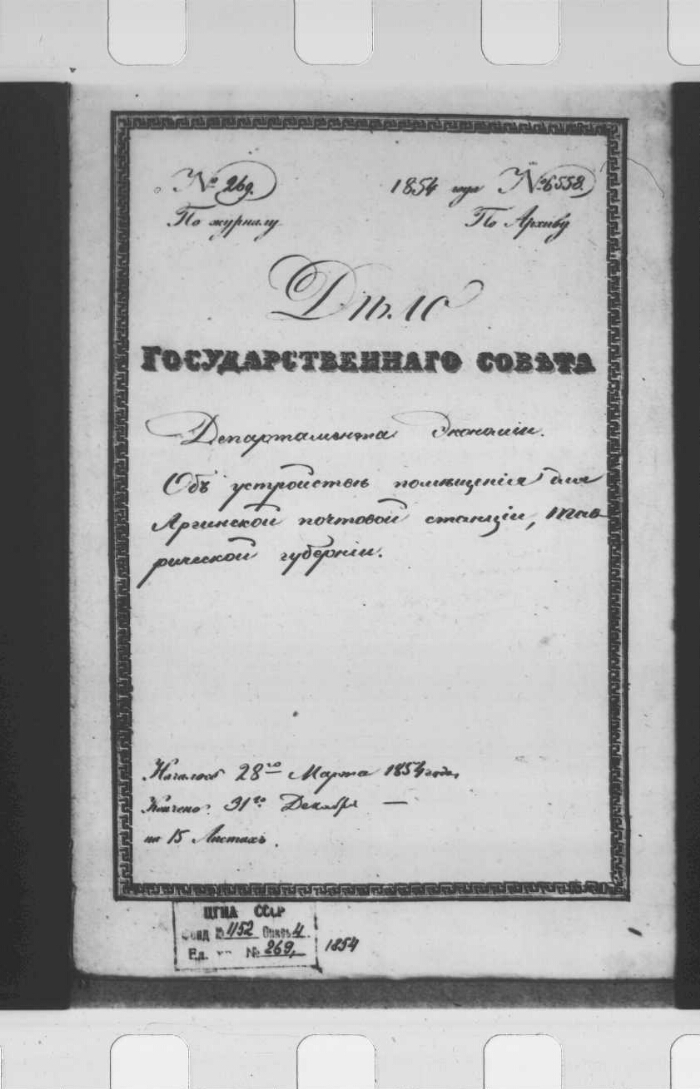 № 269. 1854 года № 6558.
По журналу По Архиву
Дѣло
ГОСУДАРСТВЕННАГО СОВѢТА
Департамента Экономіи.
Объ устройствѣ помѣщенія для
Аргинской почтовой станціи, Тав
рической губерніи.
Началось 28го Марта 1854 года,
Кончено 31го Декабря —
на 15 Листахъ.
ЦГИА СССР
Фонд № 1152 Опись 4
Ед. № 269, 1854